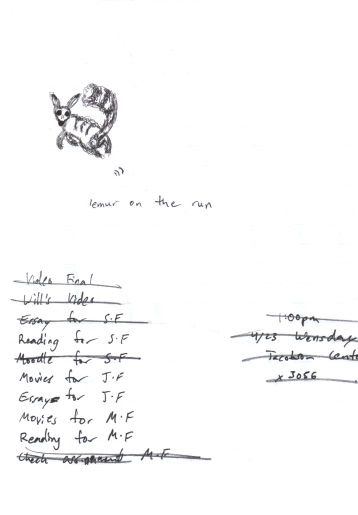 lemur on the run
Video Final
Will's Video
Essay for S.F
Reading for S.F
Moodle for S.F
Movies for J.F
Essays for J.F
Movies for M.F
Reading for M.F
Check M.F
1:00pm
4/23 Wensday
Jacobson Cent
x 3056